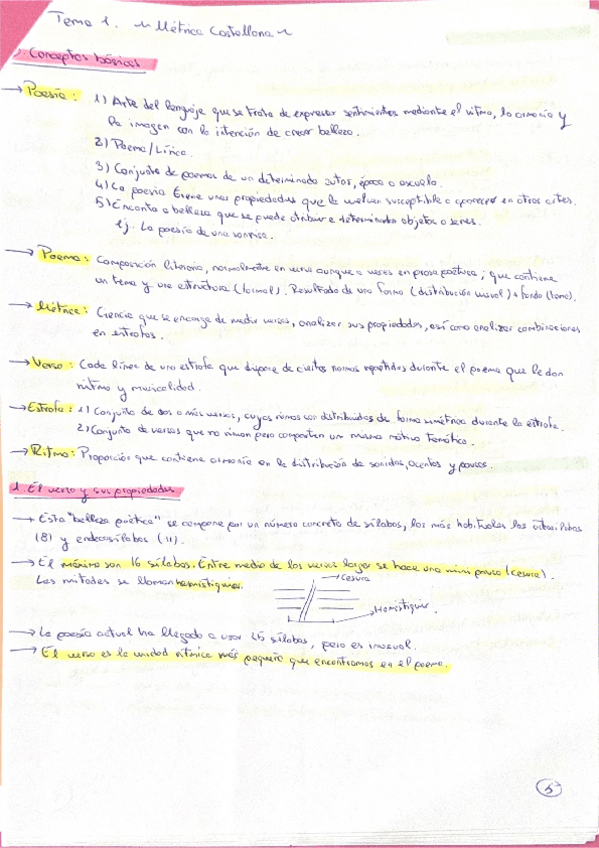 Tema 1. ~ Métrica Castellana ~
Conceptos básicos
→ Poesía: 1) Arte del lenguaje que se trata de expresar sentimientos mediante el ritmo, la armonía y
la imagen con la intención de crear belleza.
2) Poema/Lírica.
3) Conjunto de poemas de un determinado autor, época o escuela.
4) La poesía tiene unas propiedades que la vuelven susceptible a aparecer en otras artes.
5) Encanto o belleza que se puede atribuir a determinados objetos o seres.
ej. La poesía de una sonrisa.
→ Poema: Composición literaria, normalmente en verso aunque a veces en prosa poética; que contiene
un tema y una estructura (formal). Resultado de una forma (distribución visual) + fondo (tema).
→ Métrica: Ciencia que se encarga de medir versos, analizar sus propiedades, así como analizar combinaciones
en estrofas.
→ Verso: Cada línea de una estrofa que dispone de ciertas normas repetidas durante el poema que le dan
ritmo y musicalidad.
→ Estrofa: 1) Conjunto de dos o más versos, cuyas rimas son distribuidas de forma simétrica durante la estrofa.
2) Conjunto de versos que no riman pero comparten un mismo motivo temático.
→ Ritmo: Proporción que contiene armonía en la distribución de sonidos, acentos y pausas.
1. El verso y sus propiedades
→ Esta "belleza poética" se compone por un número concreto de sílabas, los más habituales los octosílabos
(8) y endecasílabos (11).
→ El máximo son 16 sílabas. Entre medio de los versos largos se hace una mini pausa (cesura).
Las mitades se llaman hemistiquios.
→ cesura
→ Hemistiquio
→ La poesía actual ha llegado a usar 45 sílabas, pero es inusual.
→ El verso es la unidad rítmica más pequeña que encontramos en el poema.